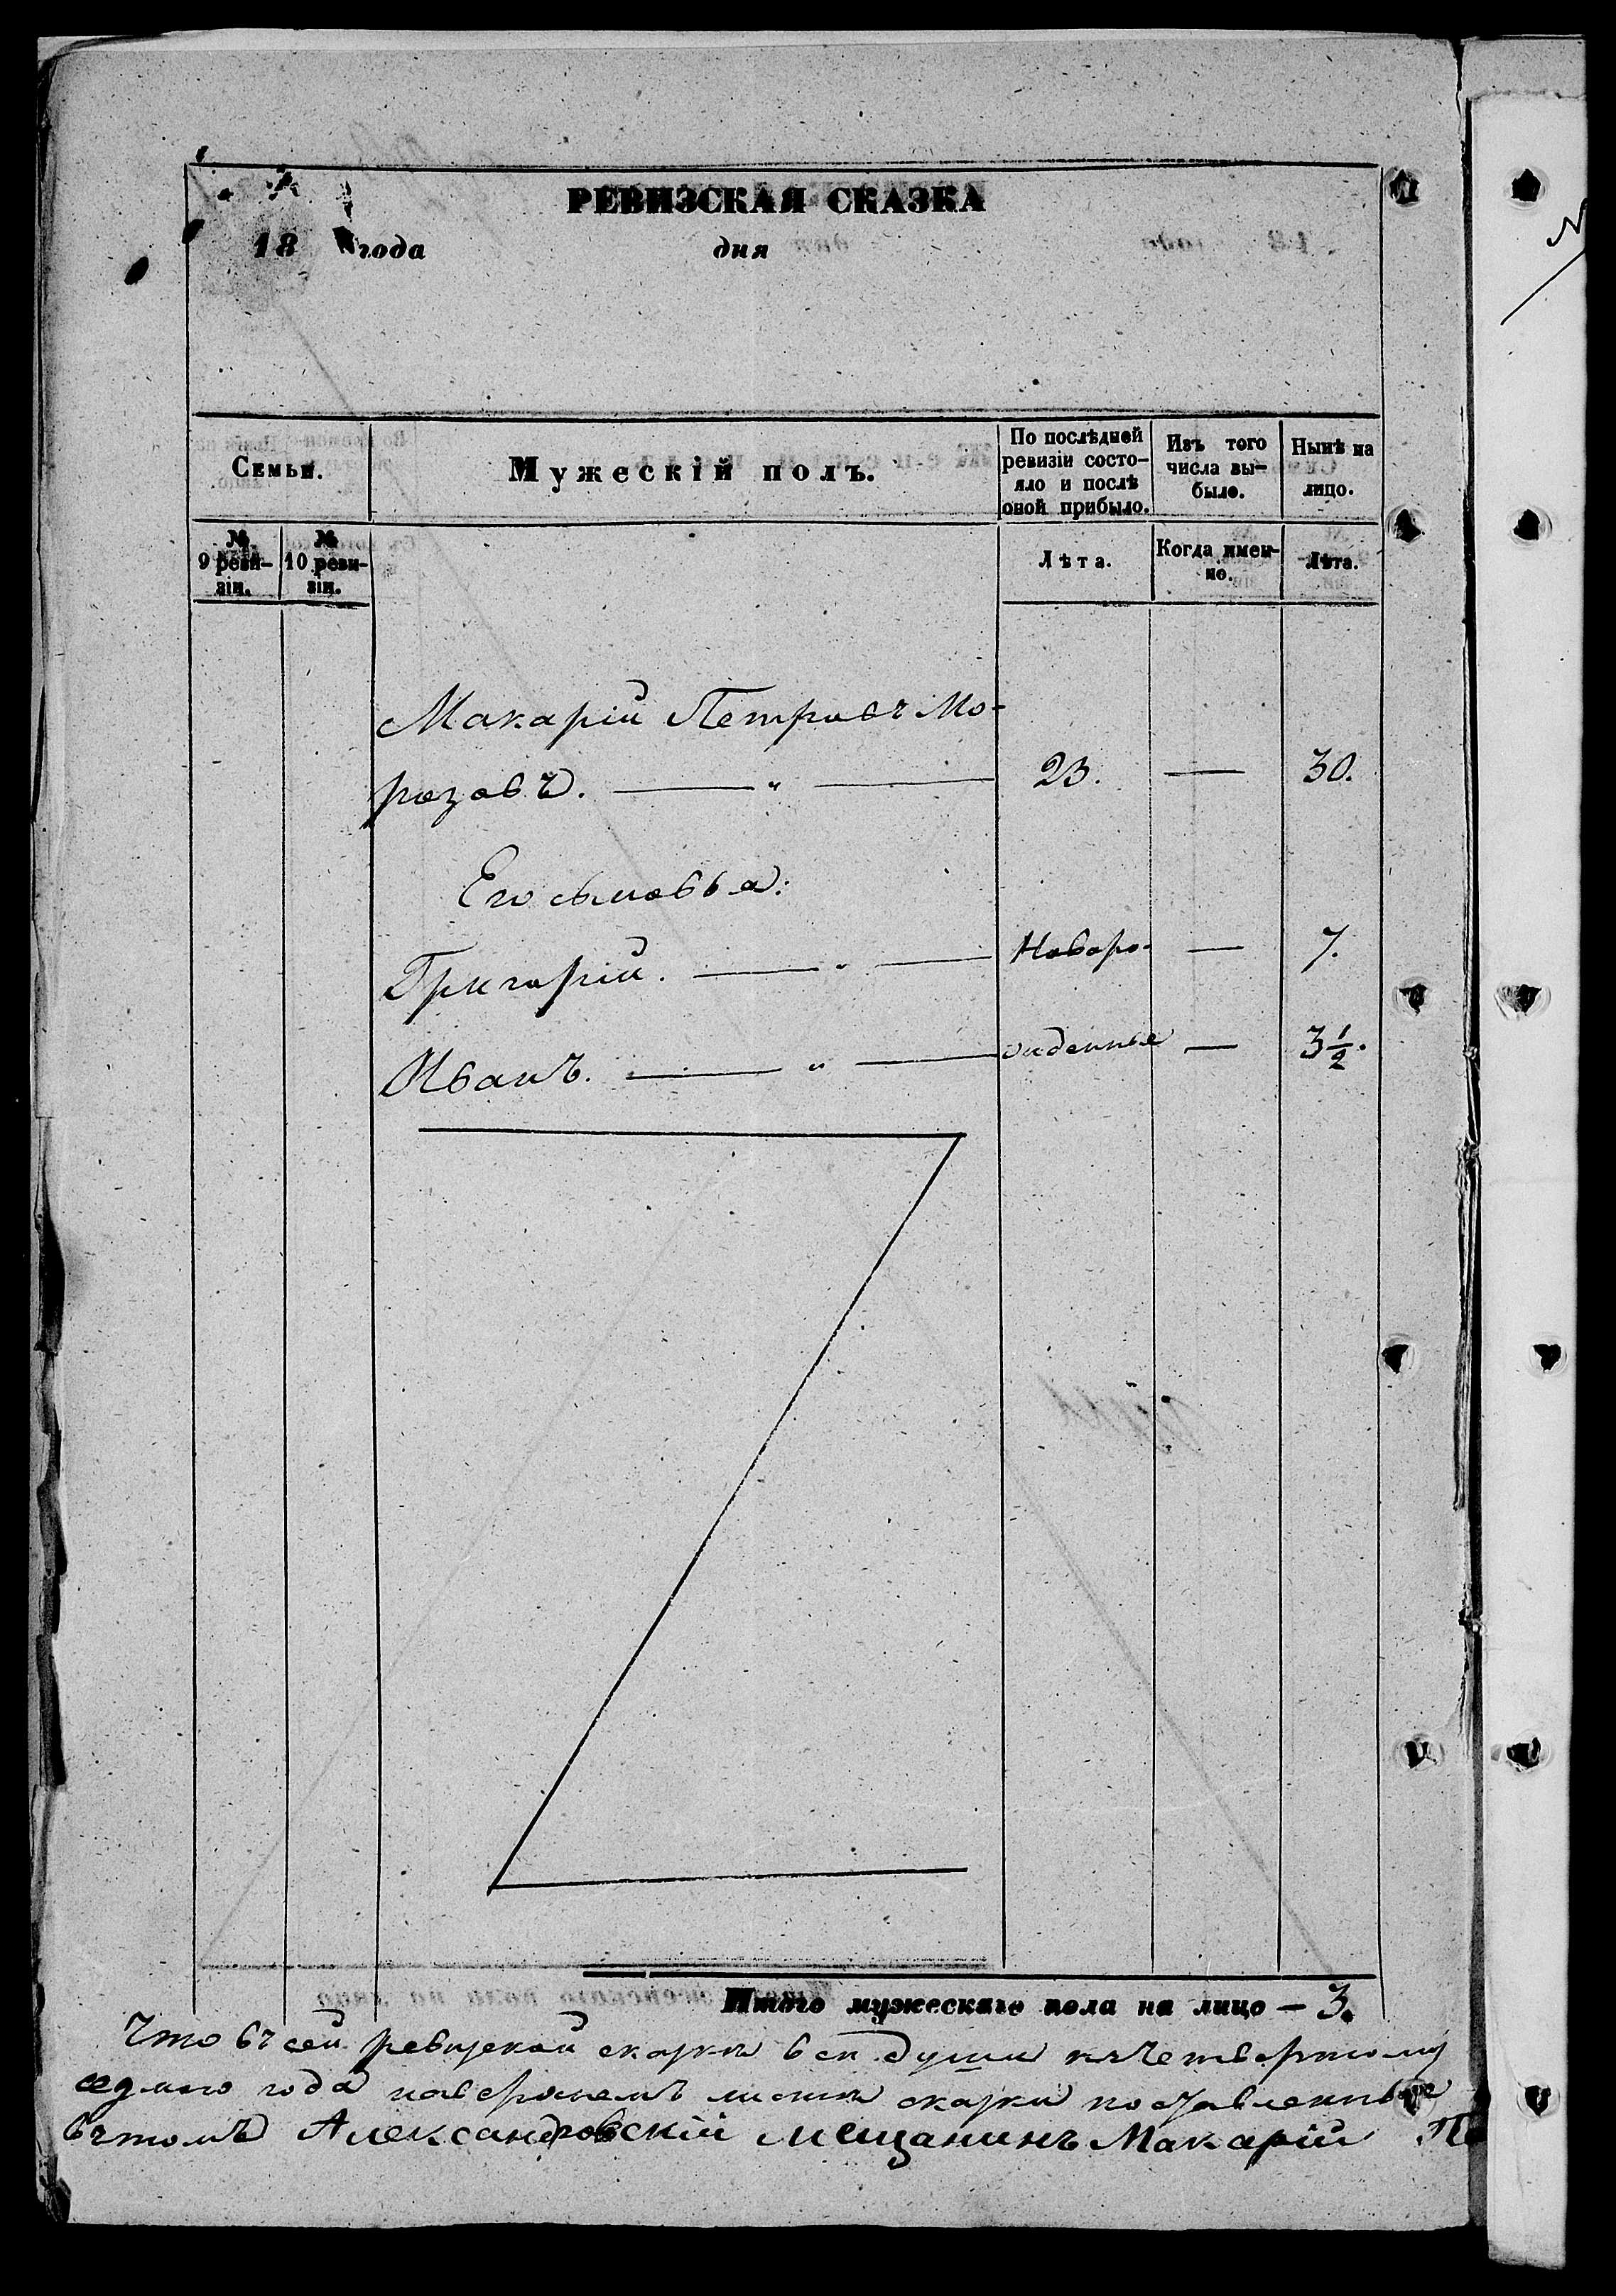 РЕВИЗСКАЯ СКАЗКА
18 года дня
Семьи.
Мужескій полъ.
По послѣдней
ревизіи состо-
яло и послѣ
оной прибыло.
Изъ того
числа вы-
было.
Нынѣ на
лицо.
№
9 реви-
зіи.
№
10 реви-
зіи.
Лѣта.
Когда имен-
но.
Лѣта.
Макарій Петровъ Мо-
розовъ. — „ — 23. — 30.
Его сыновья:
Григорій. — „ — Новоро- — 7.
Иванъ. — „ — жденные — 3 1/2.
Итого мужескаго пола на лицо — 3.
Что въ сей ревизской сказки всѣ души къ четвертому
седмаго года сказки поставленные
въ томъ Александровскій мещанинъ Макарій Пе